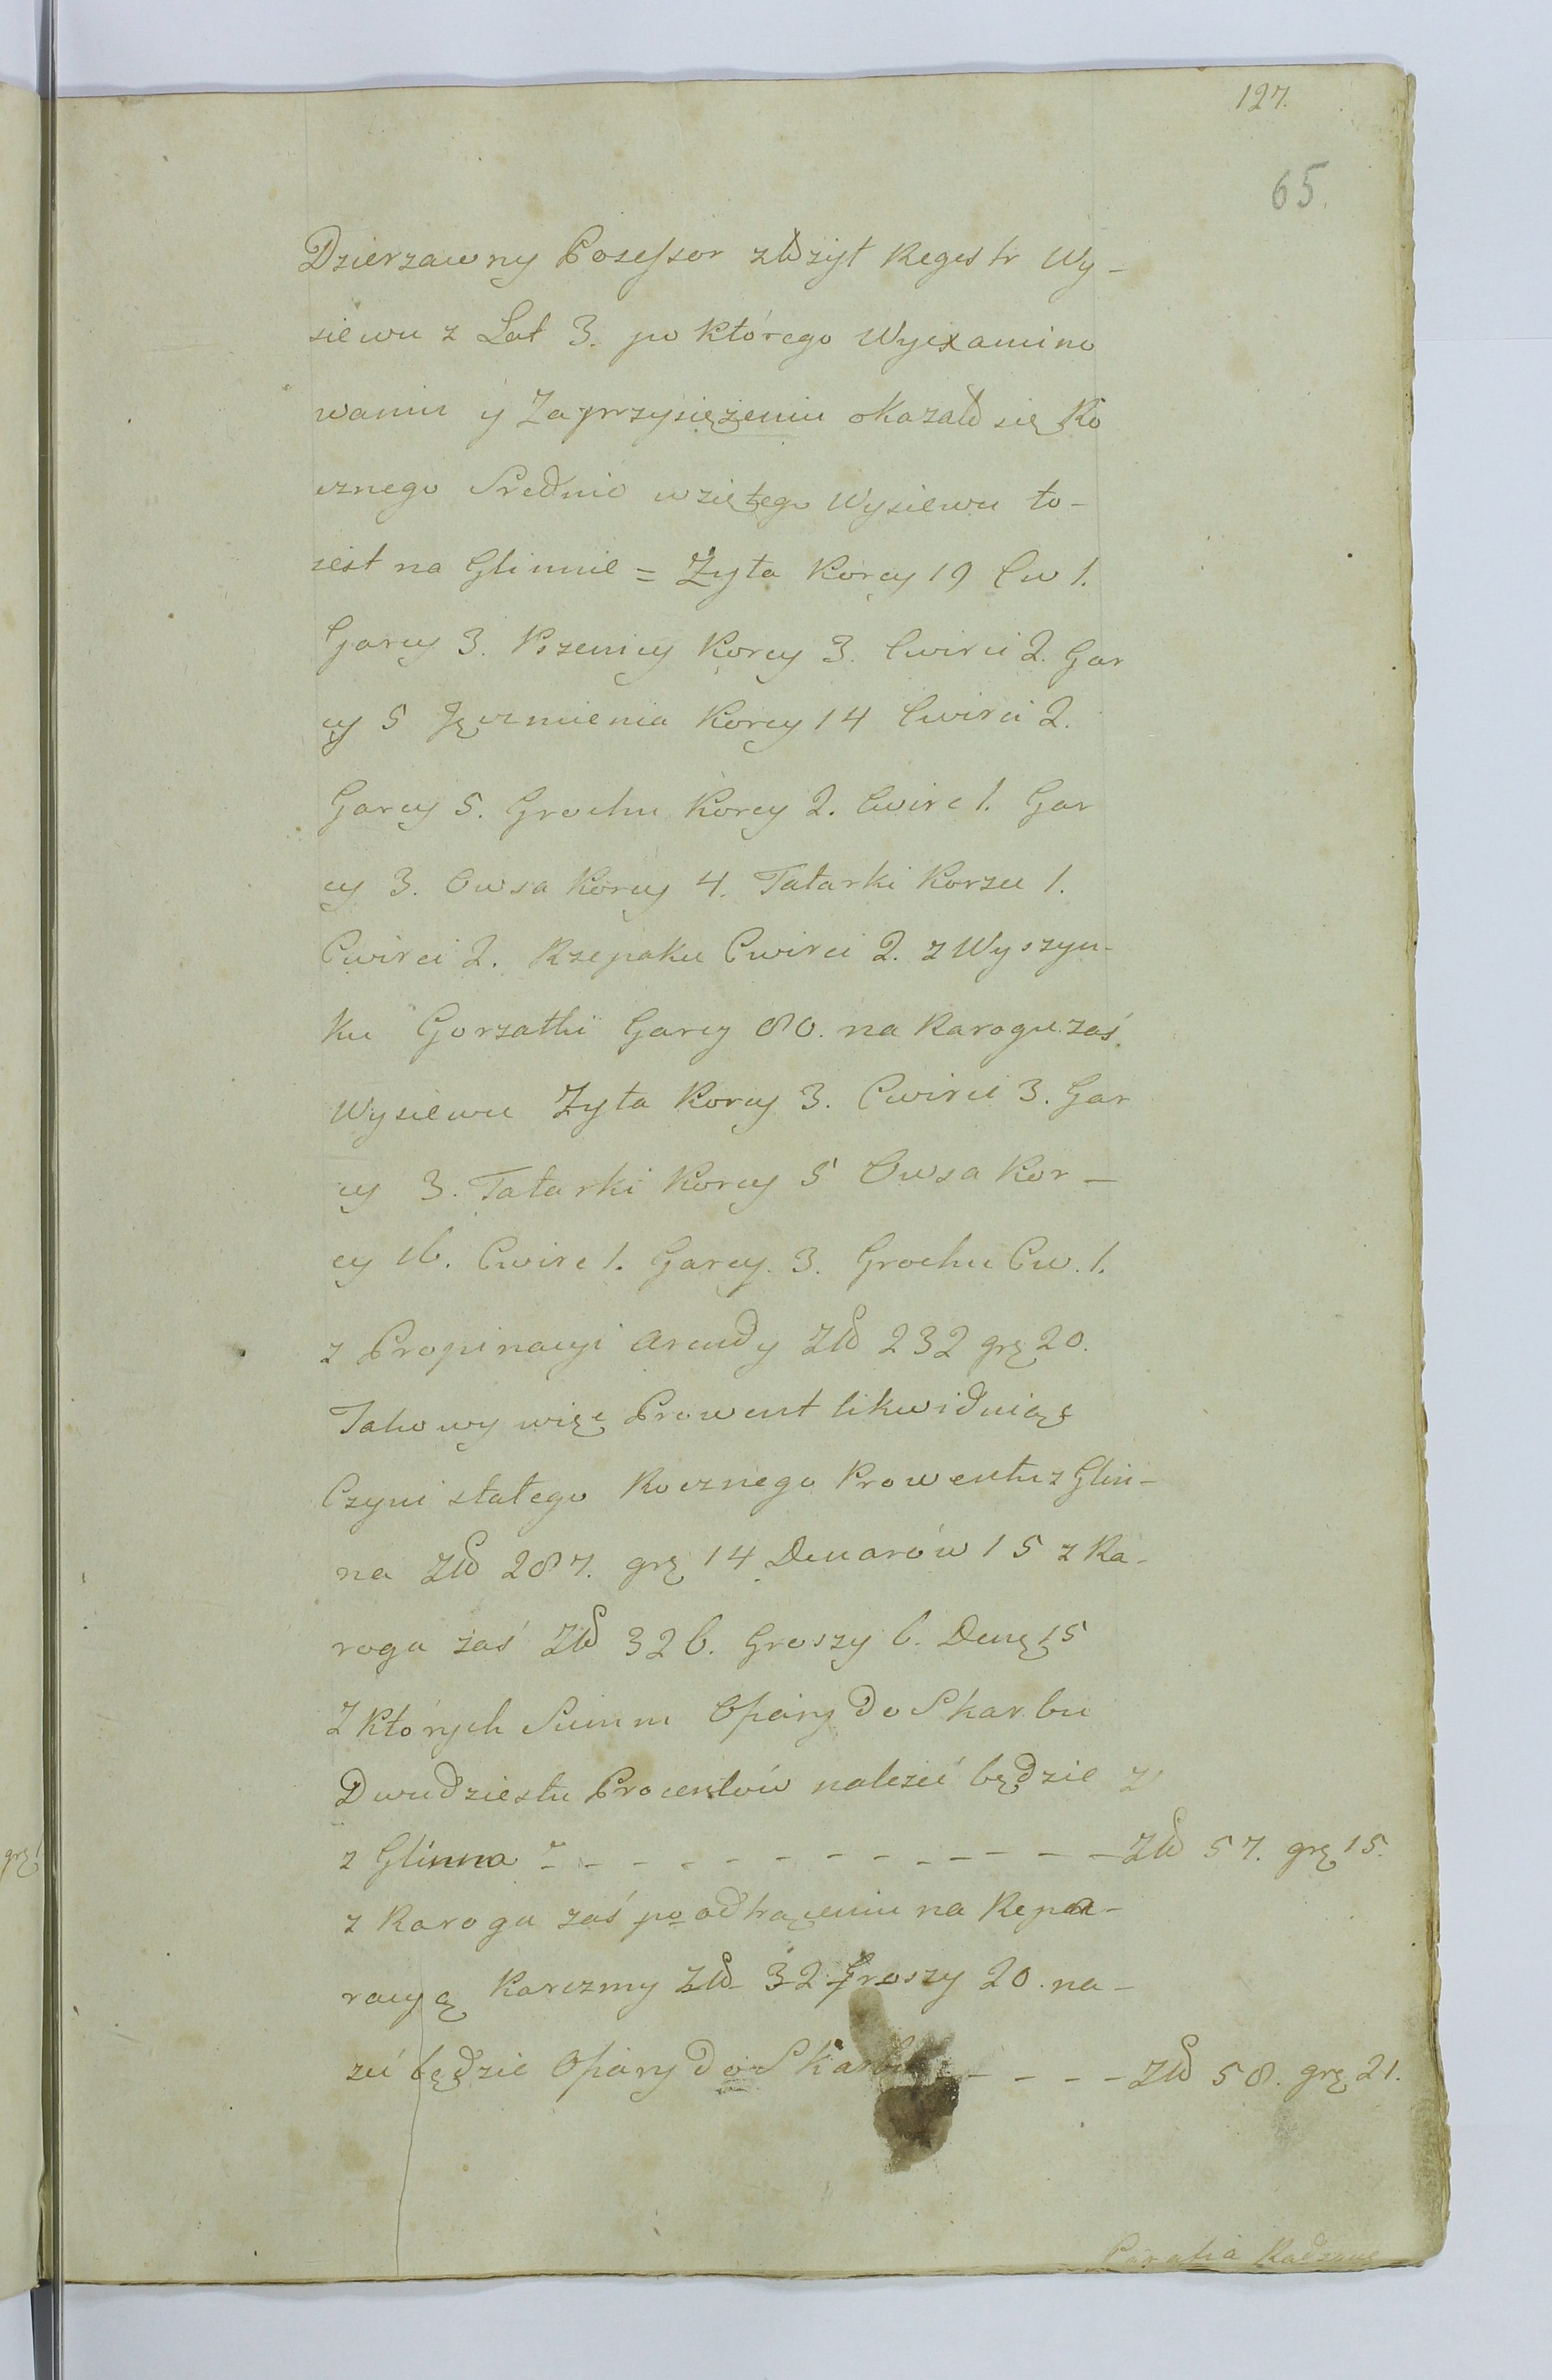 127.
65.
Dzierzawny Possessor złożył Regestr Wy-
siewu z Lat 3. po którego Wyexamino
waniu y Zaprzysiężeniu okazało się Ro
cznego Srednio wziętego Wysiewu to-
iest na Glinnie = Zyta Korcy 19 Cw 1.
Garcy 3. Pszenicy Korcy 3. Cwirci 2. Gar
cy 5 Jęczmienia Korcy 14 Cwirci 2.
Garcy 5. Grochu Korcy 2. Cwirc 1. Gar
cy 3. Owsa Korcy 4. Tatarki Korzec 1.
Cwirci 2. Rzepaku Cwirci 2. z Wyszyn-
ku Gorzałki Garcy 80. na Karogu zaś
Wysiewu Zyta Korcy 3. Cwirci 3. Gar
cy 3. Tatarki Korcy 5 Owsa Kor-
cy 16. Cwirc 1. Garcy. 3. Grochu Cw. 1.
z Propinacyi Arendy Zło 232 gr 20.
Takowy więc Prowent likwiduiąc
Czyni stałego Rocznego Prowentu z Glin-
na Zło 287. gr 14 Denarów 15 z Ka-
roga zaś Zło 326. Groszy 6. Den 15
Z których Summ Ofiary do Skarbu
Dwudziestu Procentów należeć będzie z
z Glinna - - - - - - - - - - - - Zło 57. gr 15.
z Karoga zaś po odtrąceniu na Repa-
racyą Karczmy Zło 32 Groszy 20. na-
żeć będzie Ofiary do Skarbu - - - - Zło 58. gr 21.
Parafia
gr